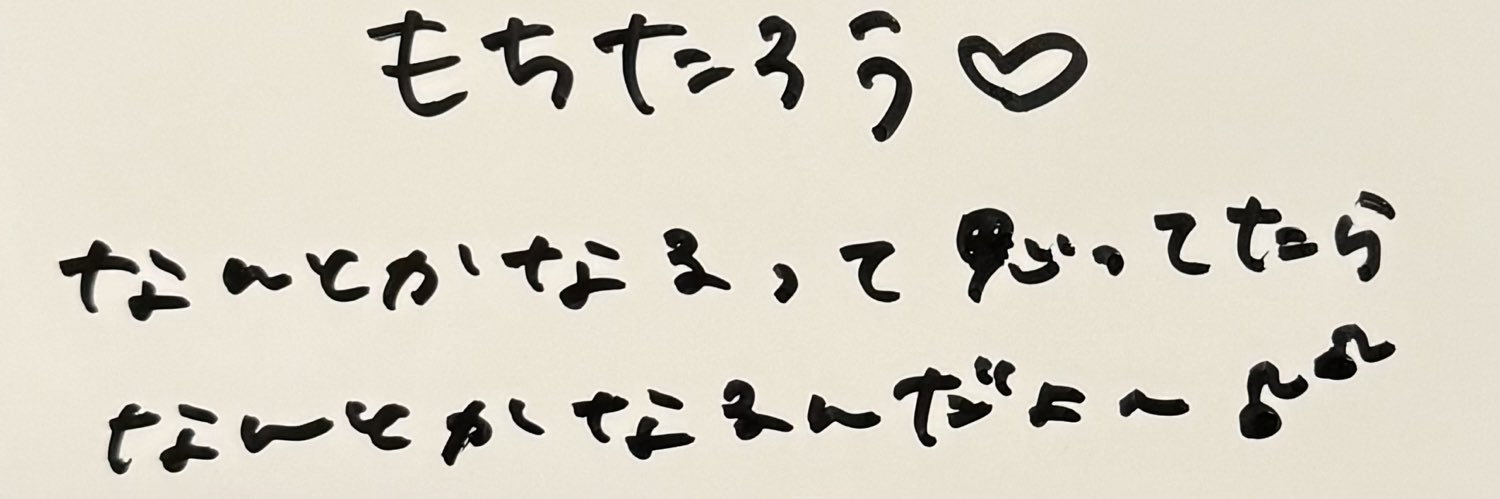 もちたろう♡
なんとかなるって思ってたら
なんとかなるんだよ〜♪♪